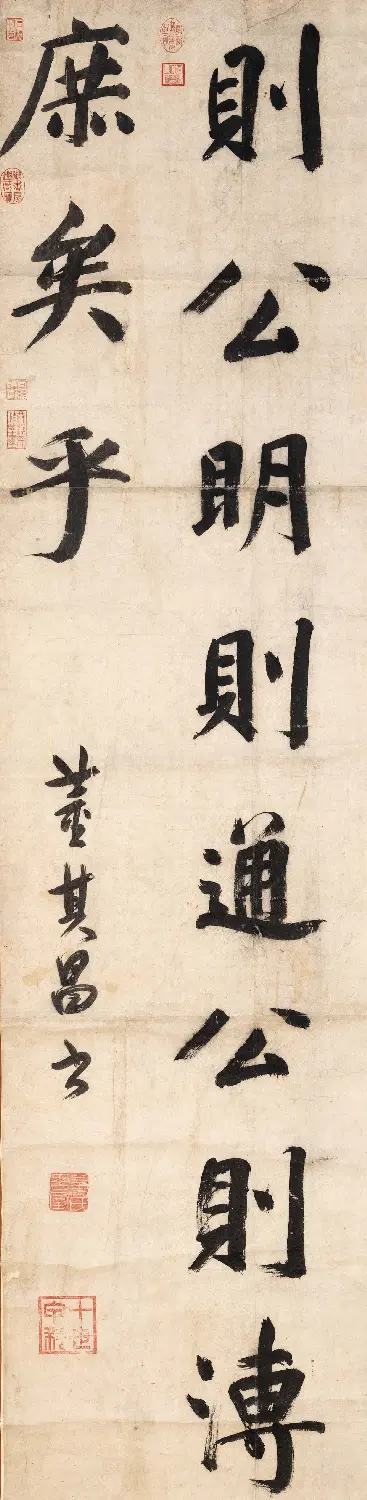 則公明則通公則溥
庶矣乎
董其昌书